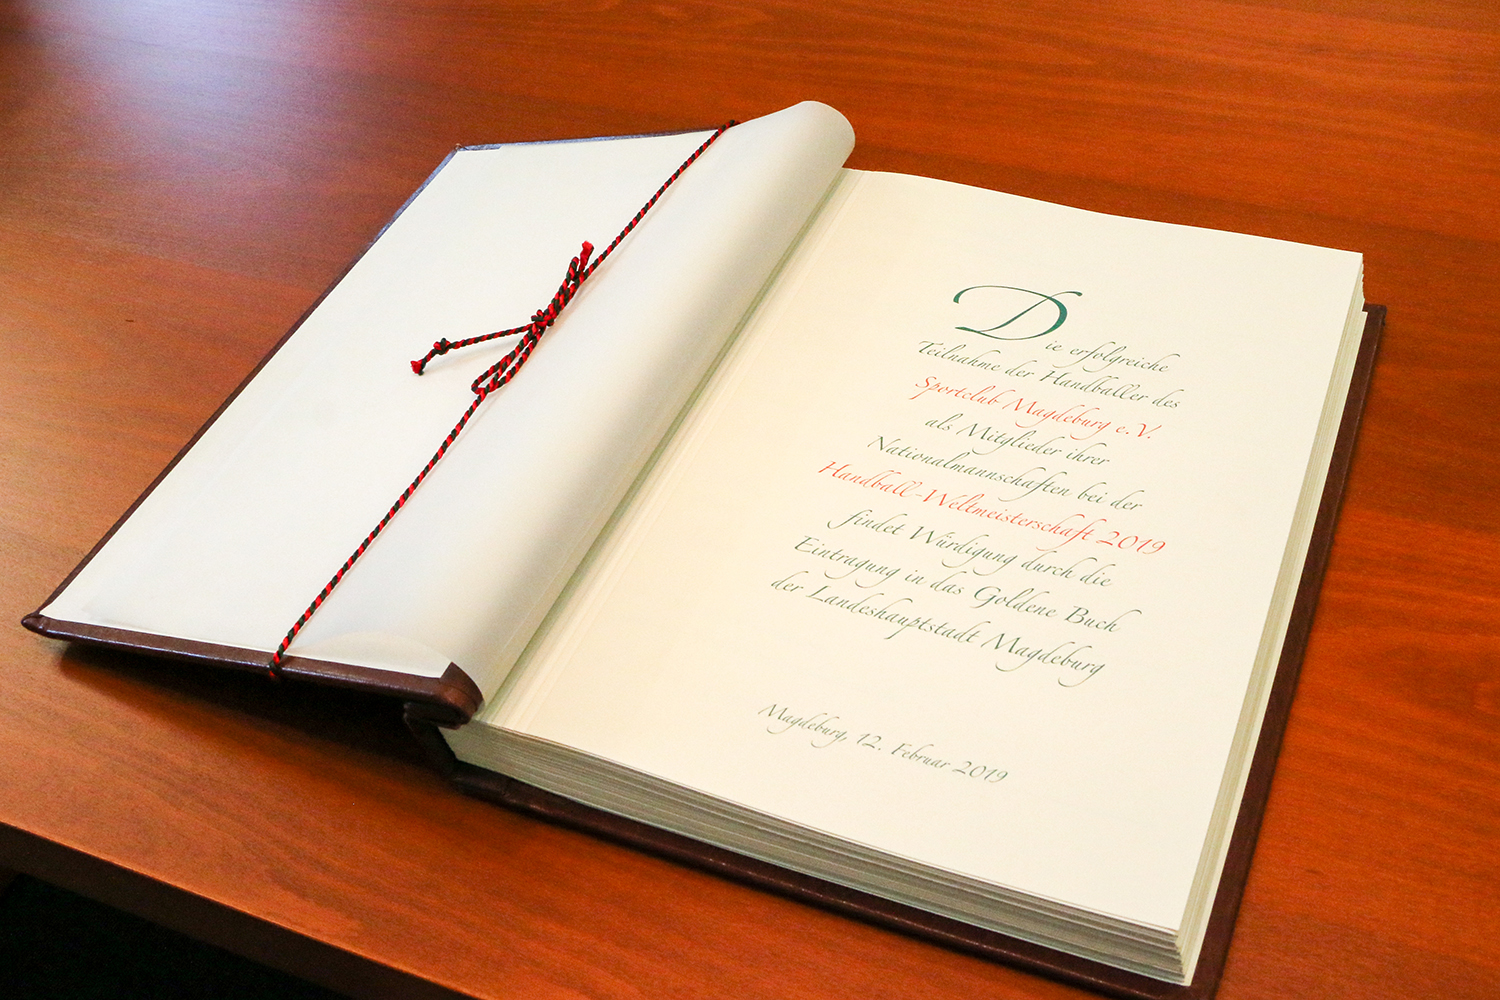 Die erfolgreiche
Teilnahme der Handballer des
Sportclub Magdeburg e.V.
als Mitglieder ihrer
Nationalmannschaften bei der
Handball-Weltmeisterschaft 2019
findet Würdigung durch die
Eintragung in das Goldene Buch
der Landeshauptstadt Magdeburg
Magdeburg, 12. Februar 2019